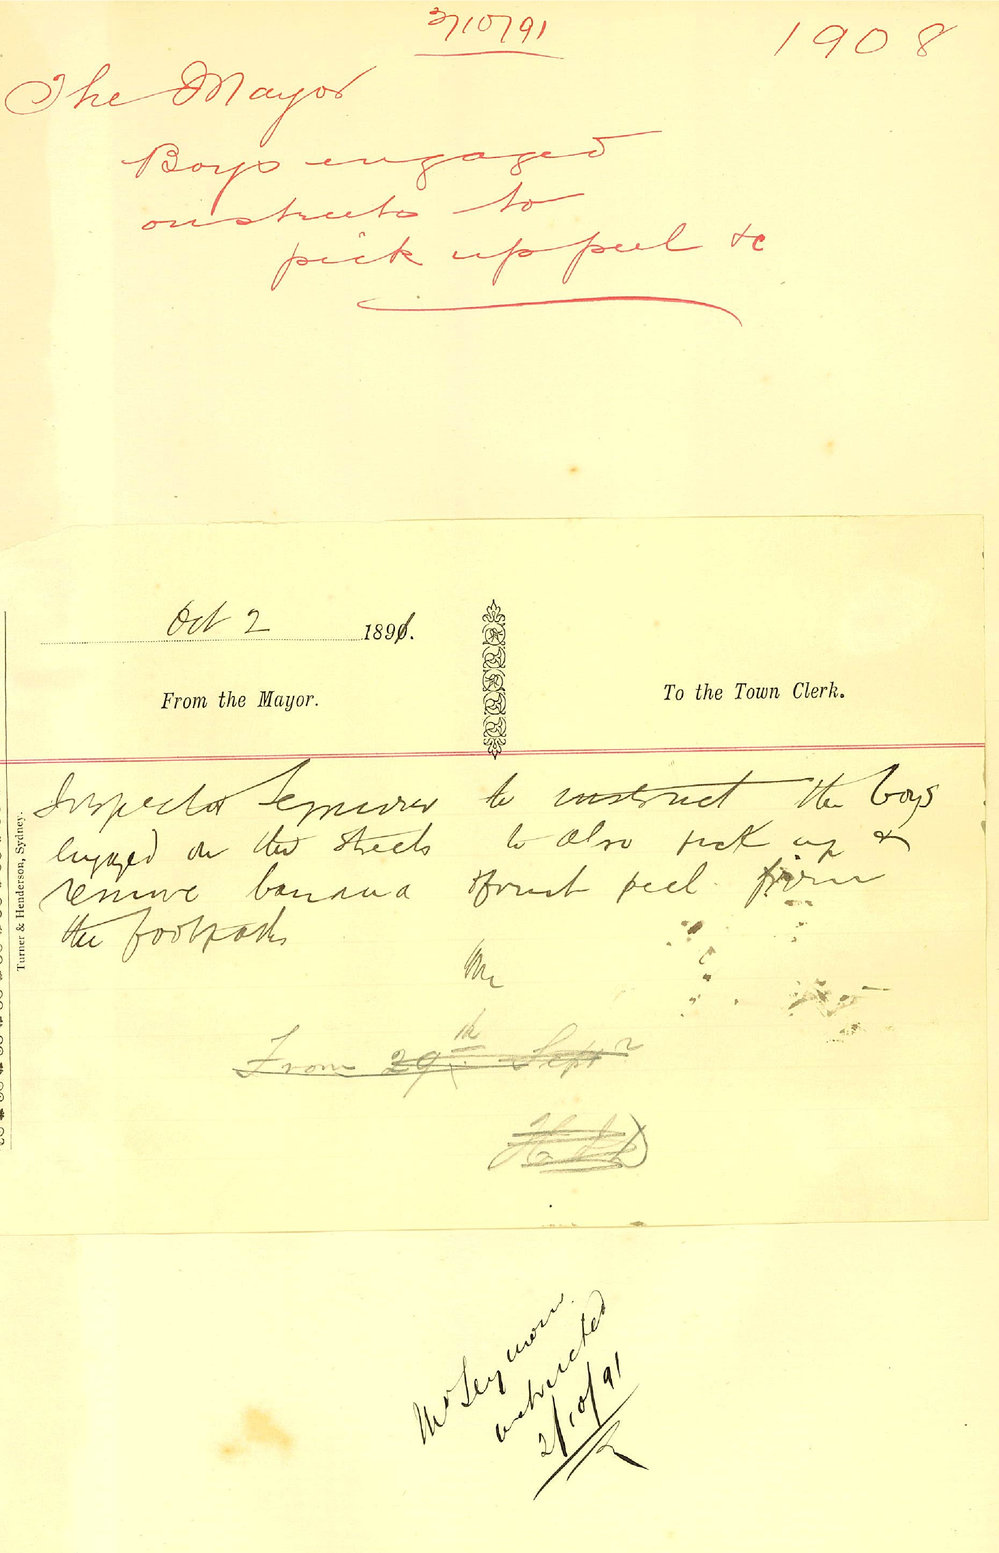 3/10/91
1908
The Mayor
Boys engaged
on streets to
pick up peel &c
Oct 2 1891.
From the Mayor.
To the Town Clerk.
Inspector Seymour to instruct the boys
engaged on the streets to also pick up &
remove banana & fruit peel from
the footpaths
From 29th Septr
Turner & Henderson, Sydney.
Mr Seymour
instructed
2/10/91